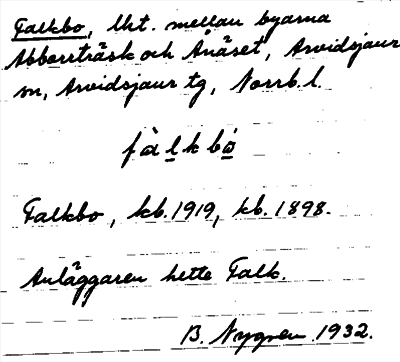 Falkbo, lht. mellan byarna
Abborrträsk och Ånäset, Arvidsjaur
sn, Arvidsjaur tg, Norrb. l.
fàlkbó
Falkbo, kb. 1919, kb. 1898.
Anläggaren hette Falk.
B. Nygren 1932.